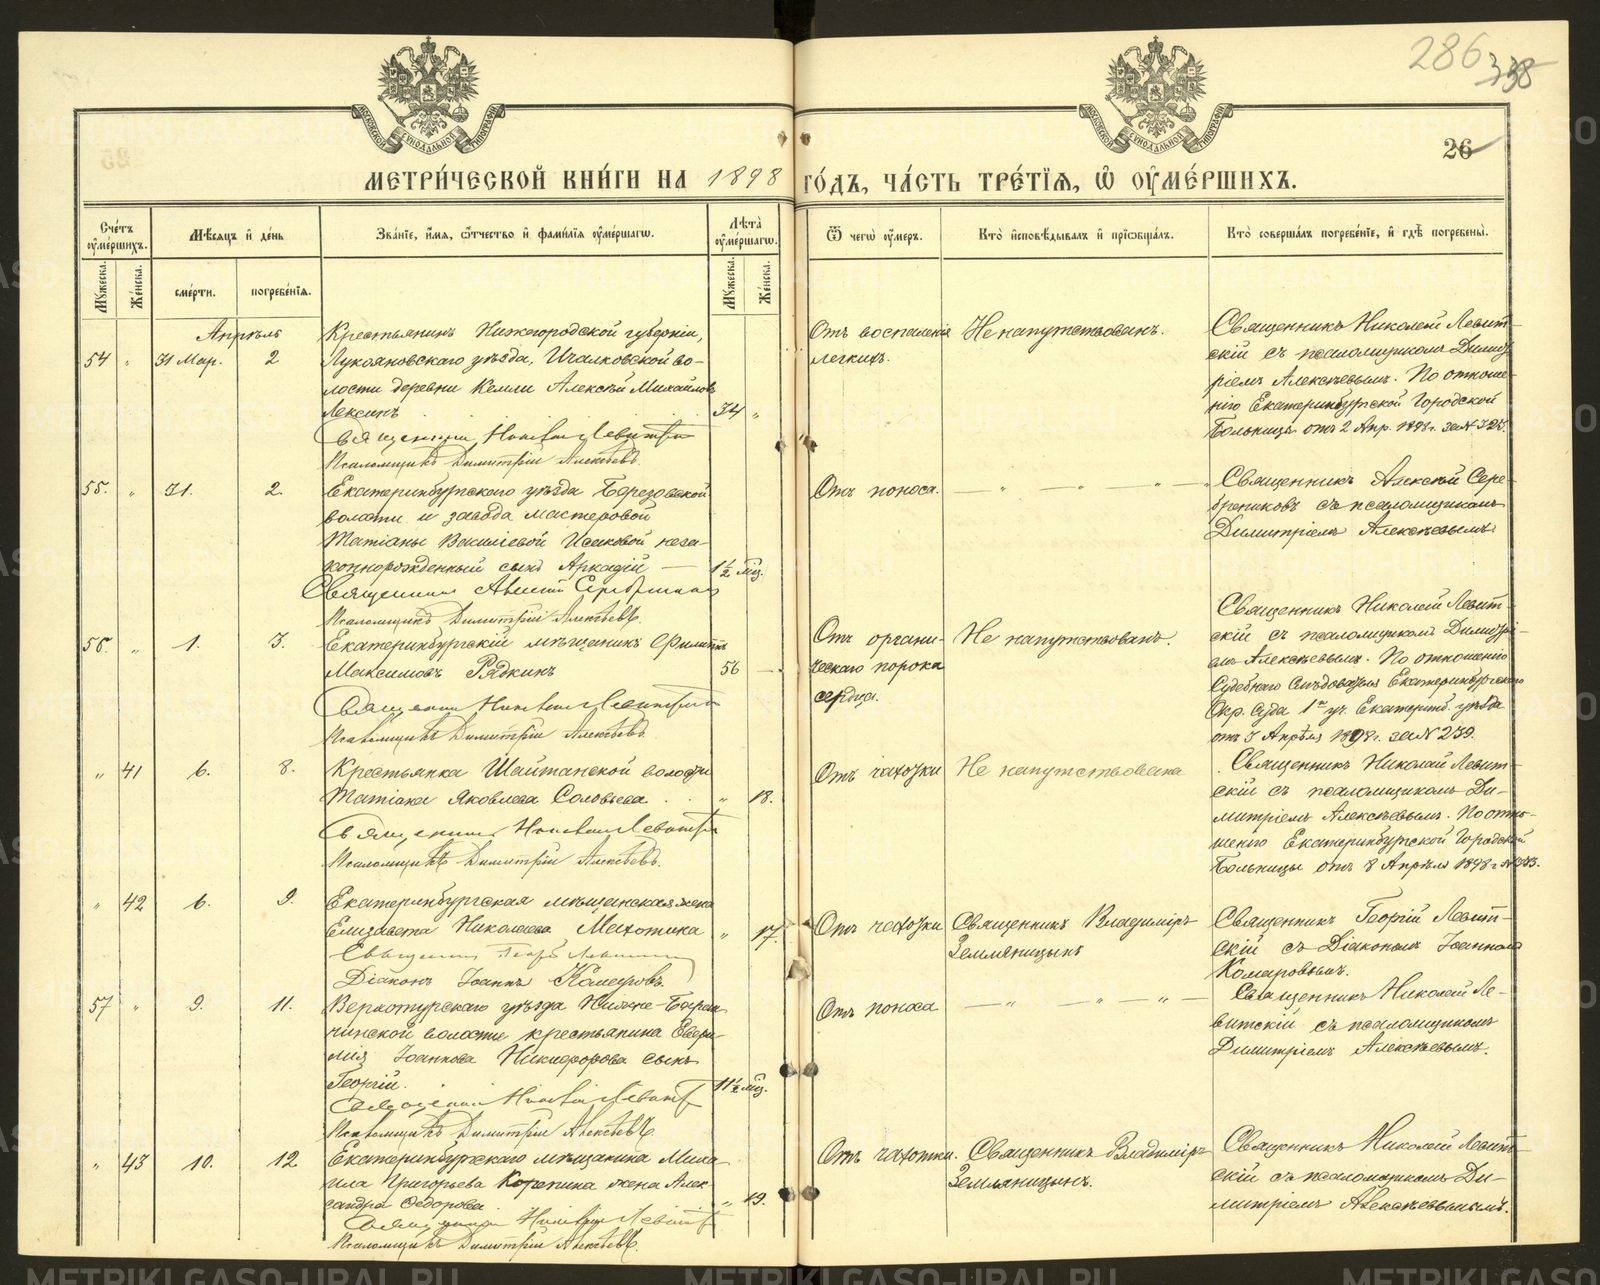 286 338
26
МЕТРИ́ЧЕСКОЙ КНИ́ГИ НА 1898 ГО́ДЪ, ЧА́СТЬ ТРЕ́ТЇѦ, Ѡ ОУМЕ́РШИХЪ.
Сче́тъ оуме́ршихъ.
Мѣсяцъ и де́нь
Зва́нїе, и́мя, ѻтчество и фами́лїя оуме́ршагѡ.
Лѣта̀ оуме́ршагѡ.
Ѿ чегѡ̀ оу́меръ.
Кто̀ исповѣ́дывалъ и прїѡбща́лъ.
Кто̀ соверша́лъ погребе́нїе, и гдѣ̀ погребены̀.
Мꙋжеска.
Же́нска.
сме́рти.
погребе́нїя.
Мꙋжеска.
Же́нска.
Апрѣль
Крестьянинъ Нижегородской губерніи,
54 " 31 Мар. 2 Лукояновскаго уѣзда, Ичалковской во-
лости деревни Кемли Алексѣй Михайловъ
Лексинъ 34 "
Священникъ Николай Левитскій
Псаломщикъ Димитрій Алексѣевъ.
Отъ воспаленія
легкихъ.
Не напутствованъ.
Священникъ Николай Левит-
скій съ псаломщикомъ Димит
ріемъ Алексѣевымъ. По отноше-
нію Екатеринбургской Городской
Больницы отъ 2 Апр. 1898 г. за №
55. " 31. 2. Екатеринбургскаго уѣзда Березовской
волости и завода мастеровой
Татіаны Василіевой Исаковой неза-
коннорожденный сынъ Аркадій — 1½ мѣс.
Священникъ Алексій Серебрениковъ
Псаломщикъ Димитрій Алексѣевъ.
Отъ поноса. — " — " —
Священникъ Алексѣй Сере-
брениковъ съ псаломщикомъ
Димитріемъ Алексѣевымъ.
56. " 1. 3. Екатеринбургскій мѣщанинъ Филиппъ
Максимовъ Рядкинъ 56 —
Священникъ Николай Левитскій
Псаломщикъ Димитрій Алексѣевъ.
Отъ органи-
ческаго порока
сердца.
Не напутствованъ.
Священникъ Николай Левит-
скій съ псаломщикомъ Димитрі-
емъ Алексѣевымъ. По отношенію
Судебнаго Слѣдователя Екатеринбургскаго
Окр. Суда 1го уч. Екатеринб. уѣзда
отъ 3 Апрѣля 1898 г. за № 239.
" 41 6. 8. Крестьянка Шайтанской волости
Татіана Яковлева Соловьева " 18.
Священникъ Николай Левитскій
Псаломщикъ Димитрій Алексѣевъ.
Отъ чахотки
Не напутствована
Священникъ Николай Левит-
скій съ псаломщикомъ Ди-
митріемъ Алексѣевымъ. По отно-
шенію Екатеринбургской Городской
Больницы отъ 8 Апрѣля 1898 г.
" 42 6. 9. Екатеринбургская мѣщанская жена
Елизавета Николаева Махотина " 17.
Священникъ Георгій Левитскій
Діаконъ Іоаннъ Комаровъ.
Отъ чахотки
Священникъ Владиміръ
Земляницынъ
Священникъ Георгій Левит-
скій съ Діакономъ Іоанномъ
Комаровымъ.
57 " 9. 11. Верхотурскаго уѣзда Нижне-Баран-
чинской волости крестьянина Евфи-
мія Іоаннова Никифорова сынъ
Георгій. 11½ мѣс.
Священникъ Николай Левитскій
Псаломщикъ Димитрій Алексѣевъ.
Отъ поноса — " — " — " —
Священникъ Николай Ле-
витскій съ псаломщикомъ
Димитріемъ Алексѣевымъ.
" 43 10. 12 Екатеринбургскаго мѣщанина Миха-
ила Григорьева Корепина жена Алек-
сандра Федорова " 19.
Священникъ Николай Левитскій
Псаломщикъ Димитрій Алексѣевъ.
Отъ чахотки.
Священникъ Владиміръ
Земляницынъ.
Священникъ Николай Левит-
скій съ псаломщикомъ Ди-
митріемъ Алексѣевымъ.
METRIKI.GASO-URAL.RU